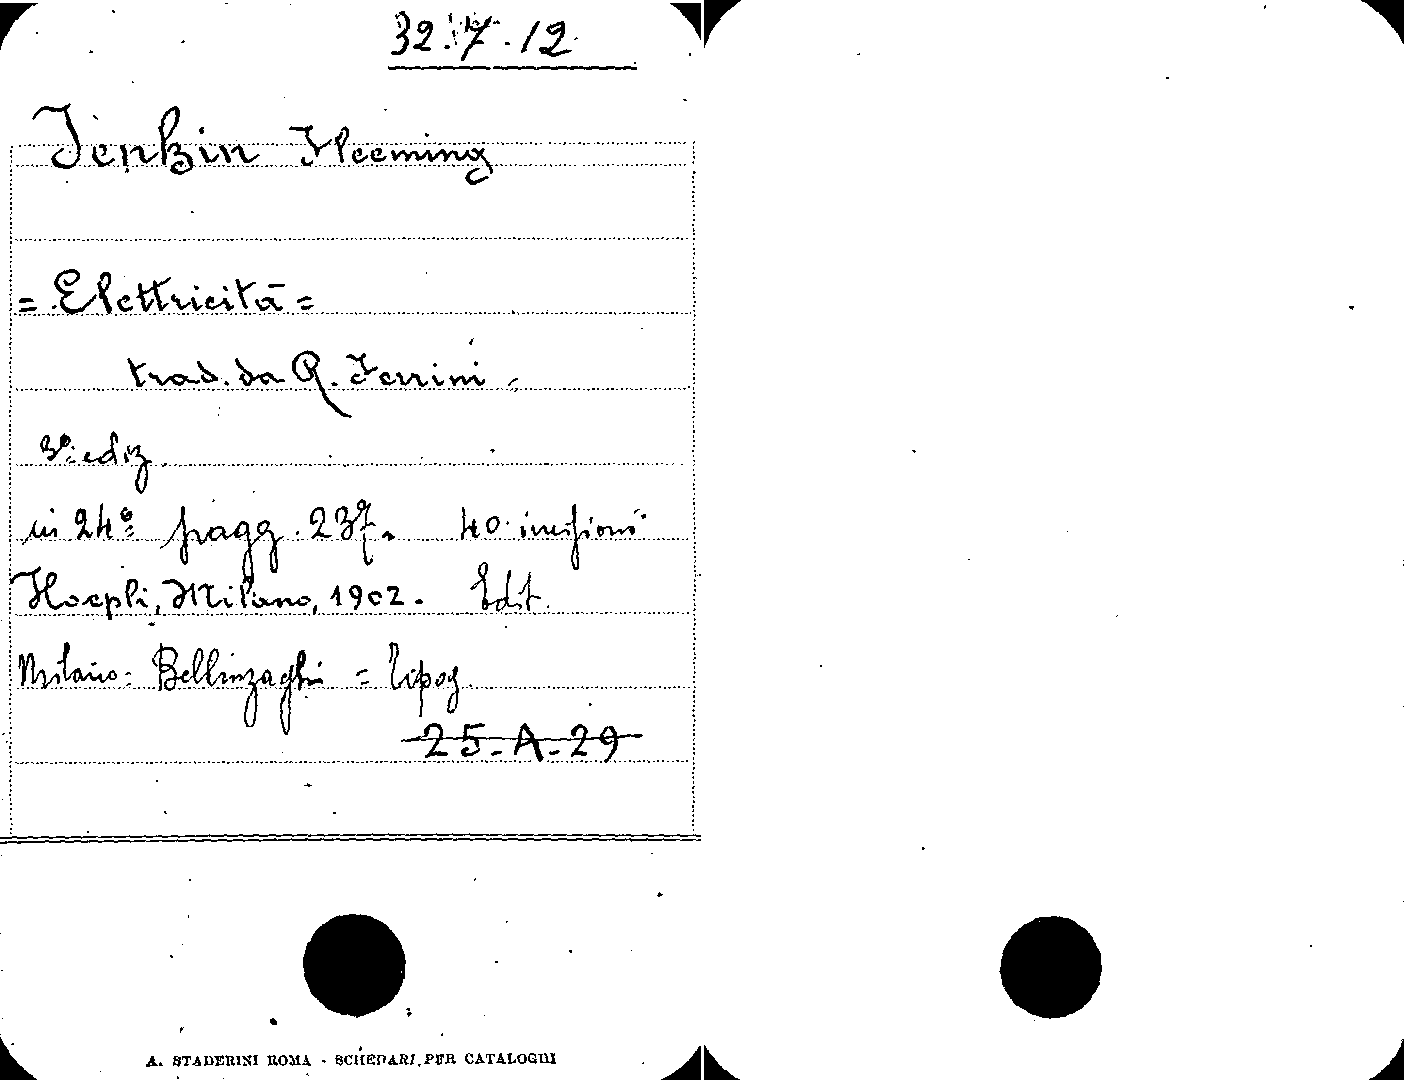 32.7.12
Jenkin Fleeming
= Elettricità =
trad. da R. Ferrini
3ª ediz.
in 24º pagg. 237. 40 incisioni
Hoepli, Milano, 1902. Edit.
Milano = Bellinzaghi = Tipog.
25-A-29
A. STADERINI ROMA - SCHEDARI PER CATALOGHI